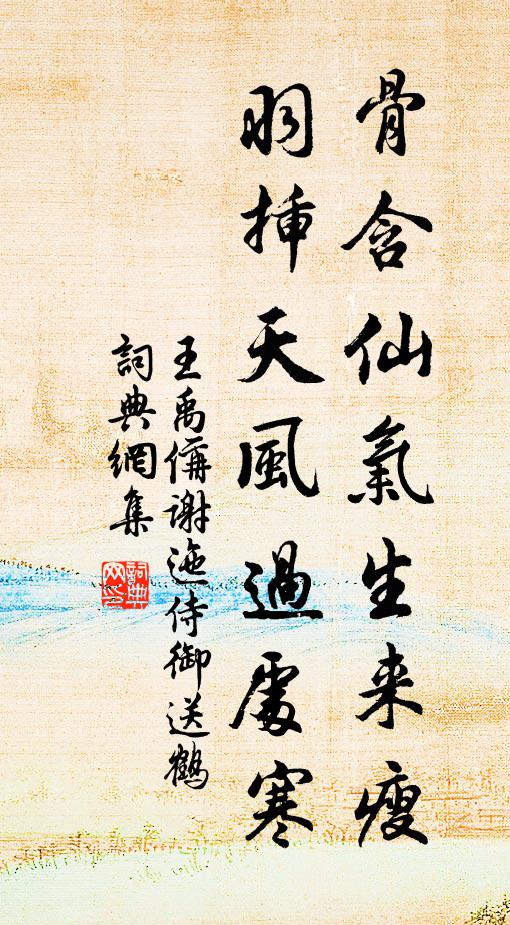 骨含仙氣生来瘦
羽挿天風過處寒
王禹偁謝迤侍御送鶴
詞典網集
詞典
网印